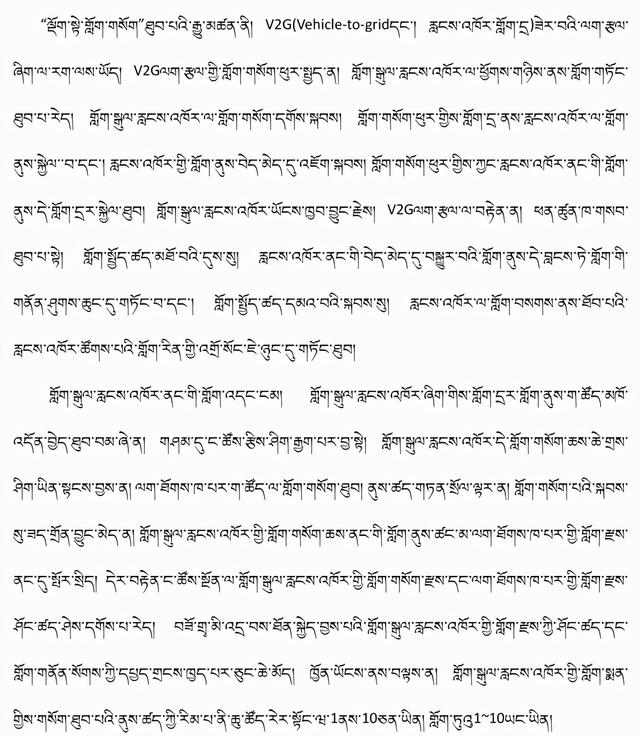 “ལྡོག་སྟེ་གློག་གསོག་”ཐུབ་པའི་རྒྱུ་མཚན་ནི། V2G(Vehicle-to-gridདང་། རླངས་འཁོར་གློག་དྲ)ཟེར་བའི་ལག་རྩལ་
ཞིག་ལ་རག་ལས་ཡོད། V2Gལག་རྩལ་གྱི་གློག་གསོག་ཕུར་སྤྱད་ན། གློག་སྒུལ་རླངས་འཁོར་ལ་ཕྱོགས་གཉིས་ནས་གློག་གཏོང་
ཐུབ་པ་རེད། གློག་སྒུལ་རླངས་འཁོར་ལ་གློག་གསོག་དགོས་སྐབས། གློག་གསོག་ཕུར་གྱིས་གློག་དྲ་ནས་རླངས་འཁོར་ལ་གློག་
ནུས་སྐྱེལ་་བ་དང་། རླངས་འཁོར་གྱི་གློག་ནུས་བེད་མེད་དུ་འཇོག་སྐབས། གློག་གསོག་ཕུར་གྱིས་ཀྱང་རླངས་འཁོར་ནང་གི་གློག་
ནུས་དེ་གློག་དྲར་སྐྱེལ་ཐུབ། གློག་སྒུལ་རླངས་འཁོར་ཡོངས་ཁྱབ་བྱུང་རྗེས། V2Gལག་རྩལ་ལ་བརྟེན་ན། ཕན་ཚུན་ཁ་གསབ་
ཐུབ་པ་སྟེ། གློག་སྤྱོད་ཚད་མཐོ་བའི་དུས་སུ། རླངས་འཁོར་ནང་གི་བེད་མེད་དུ་བསྐྱུར་བའི་གློག་ནུས་དེ་བླངས་ཏེ་གློག་གི་
གནོན་ཤུགས་ཆུང་དུ་གཏོང་བ་དང་། གློག་སྤྱོད་ཚད་དམའ་བའི་སྐབས་སུ། རླངས་འཁོར་ལ་གློག་བསགས་ནས་ཐོབ་པའི་
རླངས་འཁོར་ཚོགས་པའི་གློག་རིན་གྱི་འགྲོ་སོང་ཇེ་ཉུང་དུ་གཏོང་ཐུབ།
གློག་སྒུལ་རླངས་འཁོར་ནང་གི་གློག་འདང་ངམ། གློག་སྒུལ་རླངས་འཁོར་ཞིག་གིས་གློག་དྲར་གློག་ནུས་ག་ཚོད་མཁོ་
འདོན་བྱེད་ཐུབ་བམ་ཞེ་ན། གཤམ་དུ་ང་ཚོས་རྩིས་ཤིག་རྒྱག་པར་བྱ་སྟེ། གློག་སྒུལ་རླངས་འཁོར་དེ་གློག་གསོག་ཆས་ཆེ་གྲས་
ཤིག་ཡིན་སྟངས་བྱས་ན། ལག་ཐོགས་ཁ་པར་ག་ཚོད་ལ་གློག་གསོག་ཐུབ། ནུས་ཚད་གཏན་སྲོལ་ལྟར་ན། གློག་གསོག་པའི་སྐབས་
སུ་ཟད་གྲོན་བྱུང་མེད་ན། གློག་སྒུལ་རླངས་འཁོར་གྱི་གློག་གསོག་ཆས་ནང་གི་གློག་ནུས་ཚང་མ་ལག་ཐོགས་ཁ་པར་གྱི་གློག་རྫས་
ནང་དུ་སྤོར་སྲིད། དེར་བརྟེན་ང་ཚོས་སྔོན་ལ་གློག་སྒུལ་རླངས་འཁོར་གྱི་གློག་གསོག་རྫས་དང་ལག་ཐོགས་ཁ་པར་གྱི་གློག་རྫས་
ཤོང་ཚད་ཤེས་དགོས་པ་རེད། བཟོ་གྲྭ་མི་འདྲ་བས་ཐོན་སྐྱེད་བྱས་པའི་གློག་སྒུལ་རླངས་འཁོར་གྱི་གློག་རྫས་ཀྱི་ཤོང་ཚད་དང་
གློག་གནོན་སོགས་ཀྱི་དཔྱད་གྲངས་ཁྱད་པར་ཅུང་ཆེ་མོད། ཁྱོན་ཡོངས་ནས་བལྟས་ན། གློག་སྒུལ་རླངས་འཁོར་གྱི་གློག་སྨན་
གྱིས་གསོག་ཐུབ་པའི་ནུས་ཚད་ཀྱི་རིམ་པ་ནི་ཆུ་ཚོད་རེར་སྟོང་ཝ་1ནས་10ཅན་ཡིན། གློག་ཏུའུ1~10ཡང་ཡིན།